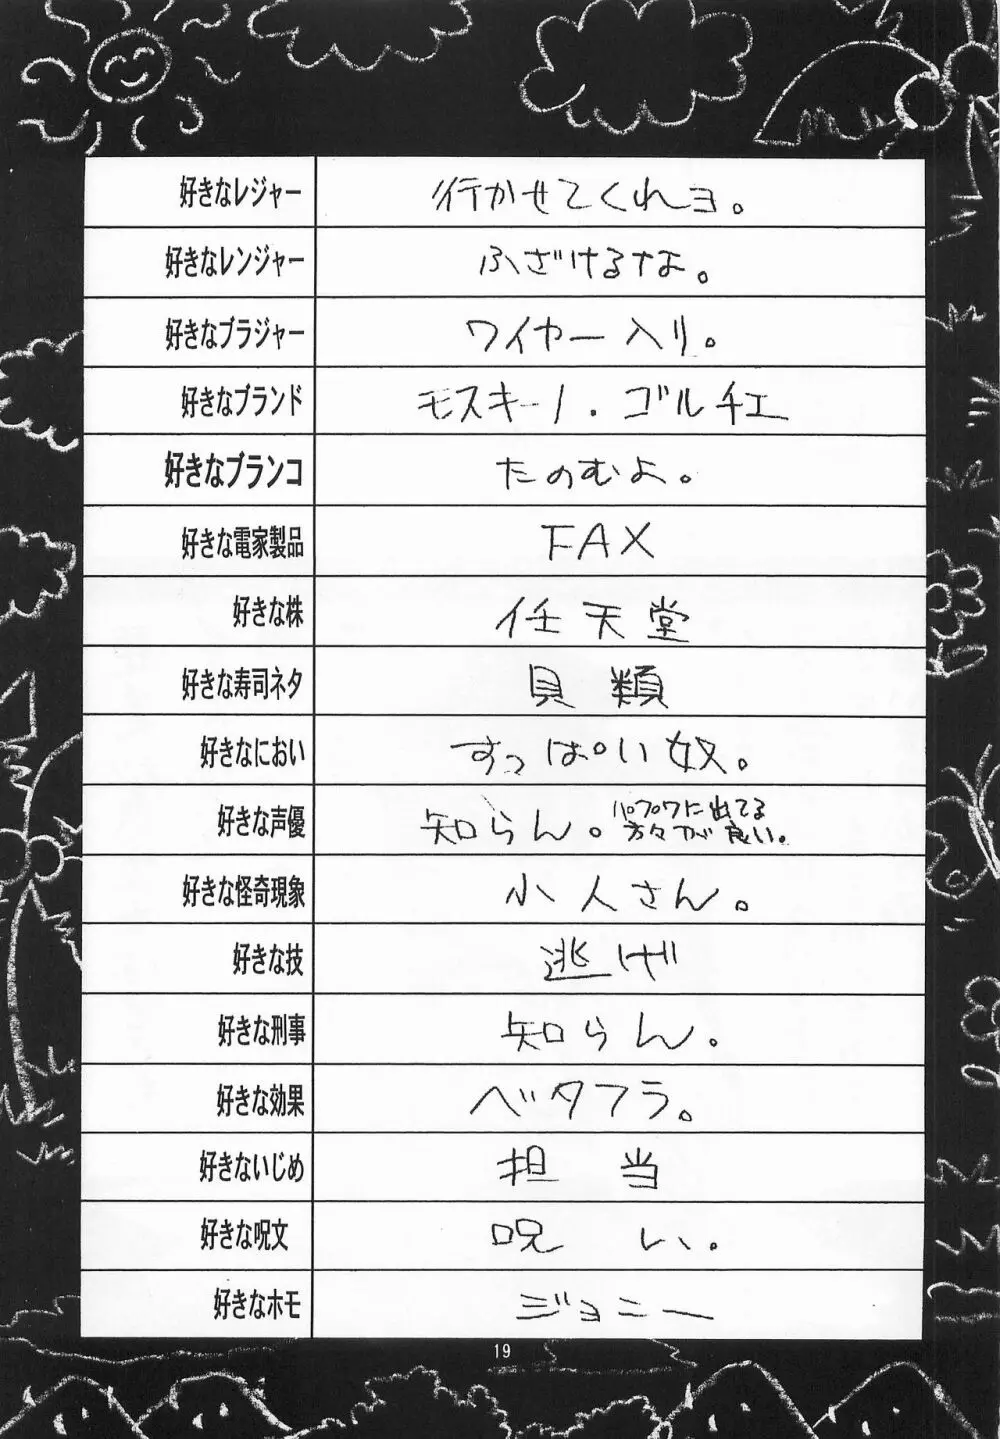 好きなレジャー 行かせてくれヨ。
好きなレンジャー ふざけるなよ。
好きなブラジャー ワイヤー入り。
好きなブランド モスキーノ・ゴルチエ
好きなブランコ たのむよ。
好きな電家製品 FAX
好きな株 任天堂
好きな寿司ネタ 貝類
好きなにおい すっぱい奴。
好きな声優 知らん。パプワに出てる
方々が良い。
好きな怪奇現象 小人さん。
好きな技 逃げ
好きな刑事 知らん。
好きな効果 ベタフラ。
好きないじめ 担当
好きな呪文 呪い。
好きなホモ ジョニー
19